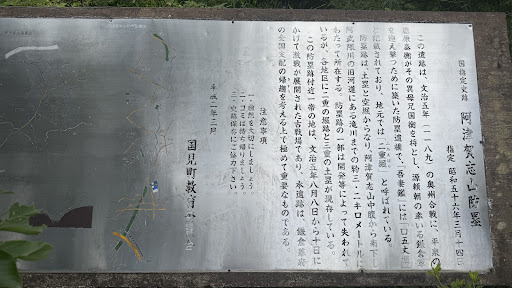 国指定史跡 阿津賀志山防塁
指定 昭和五十六年三月十四日
この遺跡は、文治五年(一一八九)の奥州合戦に、平泉の
藤原泰衡がその異母兄国衡を将とし、源頼朝の率いる鎌倉軍
を迎え撃つために築いた防塁遺構で、「吾妻鏡」には「口五丈堀」
に記載されており、地元では「二重堀」と呼ばれている。
防塁跡は、土塁と空堀からなり、阿津賀志山中腹から南下し
阿武隈川の旧河道にある滝川までの約三・二キロメートルに
わたって所在する。防塁跡の一部は開発等によって失われて
いるが、各地区に二重の堀跡と三重の土塁が現存している。
この防塁跡付近一帯の地は、文治五年八月八日から十日に
かけて激戦が展開された古戦場であり、本遺跡は、鎌倉幕府
の全国支配の帰趨を考える上で極めて重要なものである。
注意事項
一、自然を大切にしましょう。
二、ゴミは持ち帰りましょう。
三、史跡保存にご協力下さい。
平成二年三月
国見町教育委員会